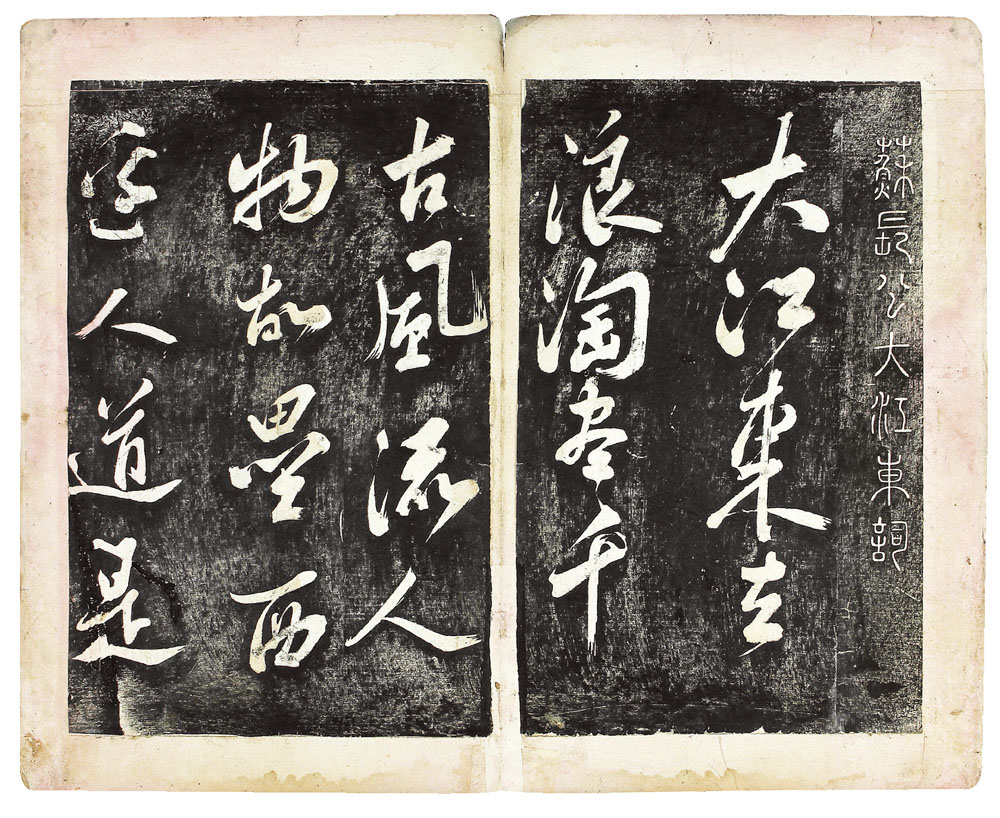 蘇長公大江東詞
大江東去
浪淘盡千
古風流人
物故壘西
邊人道是